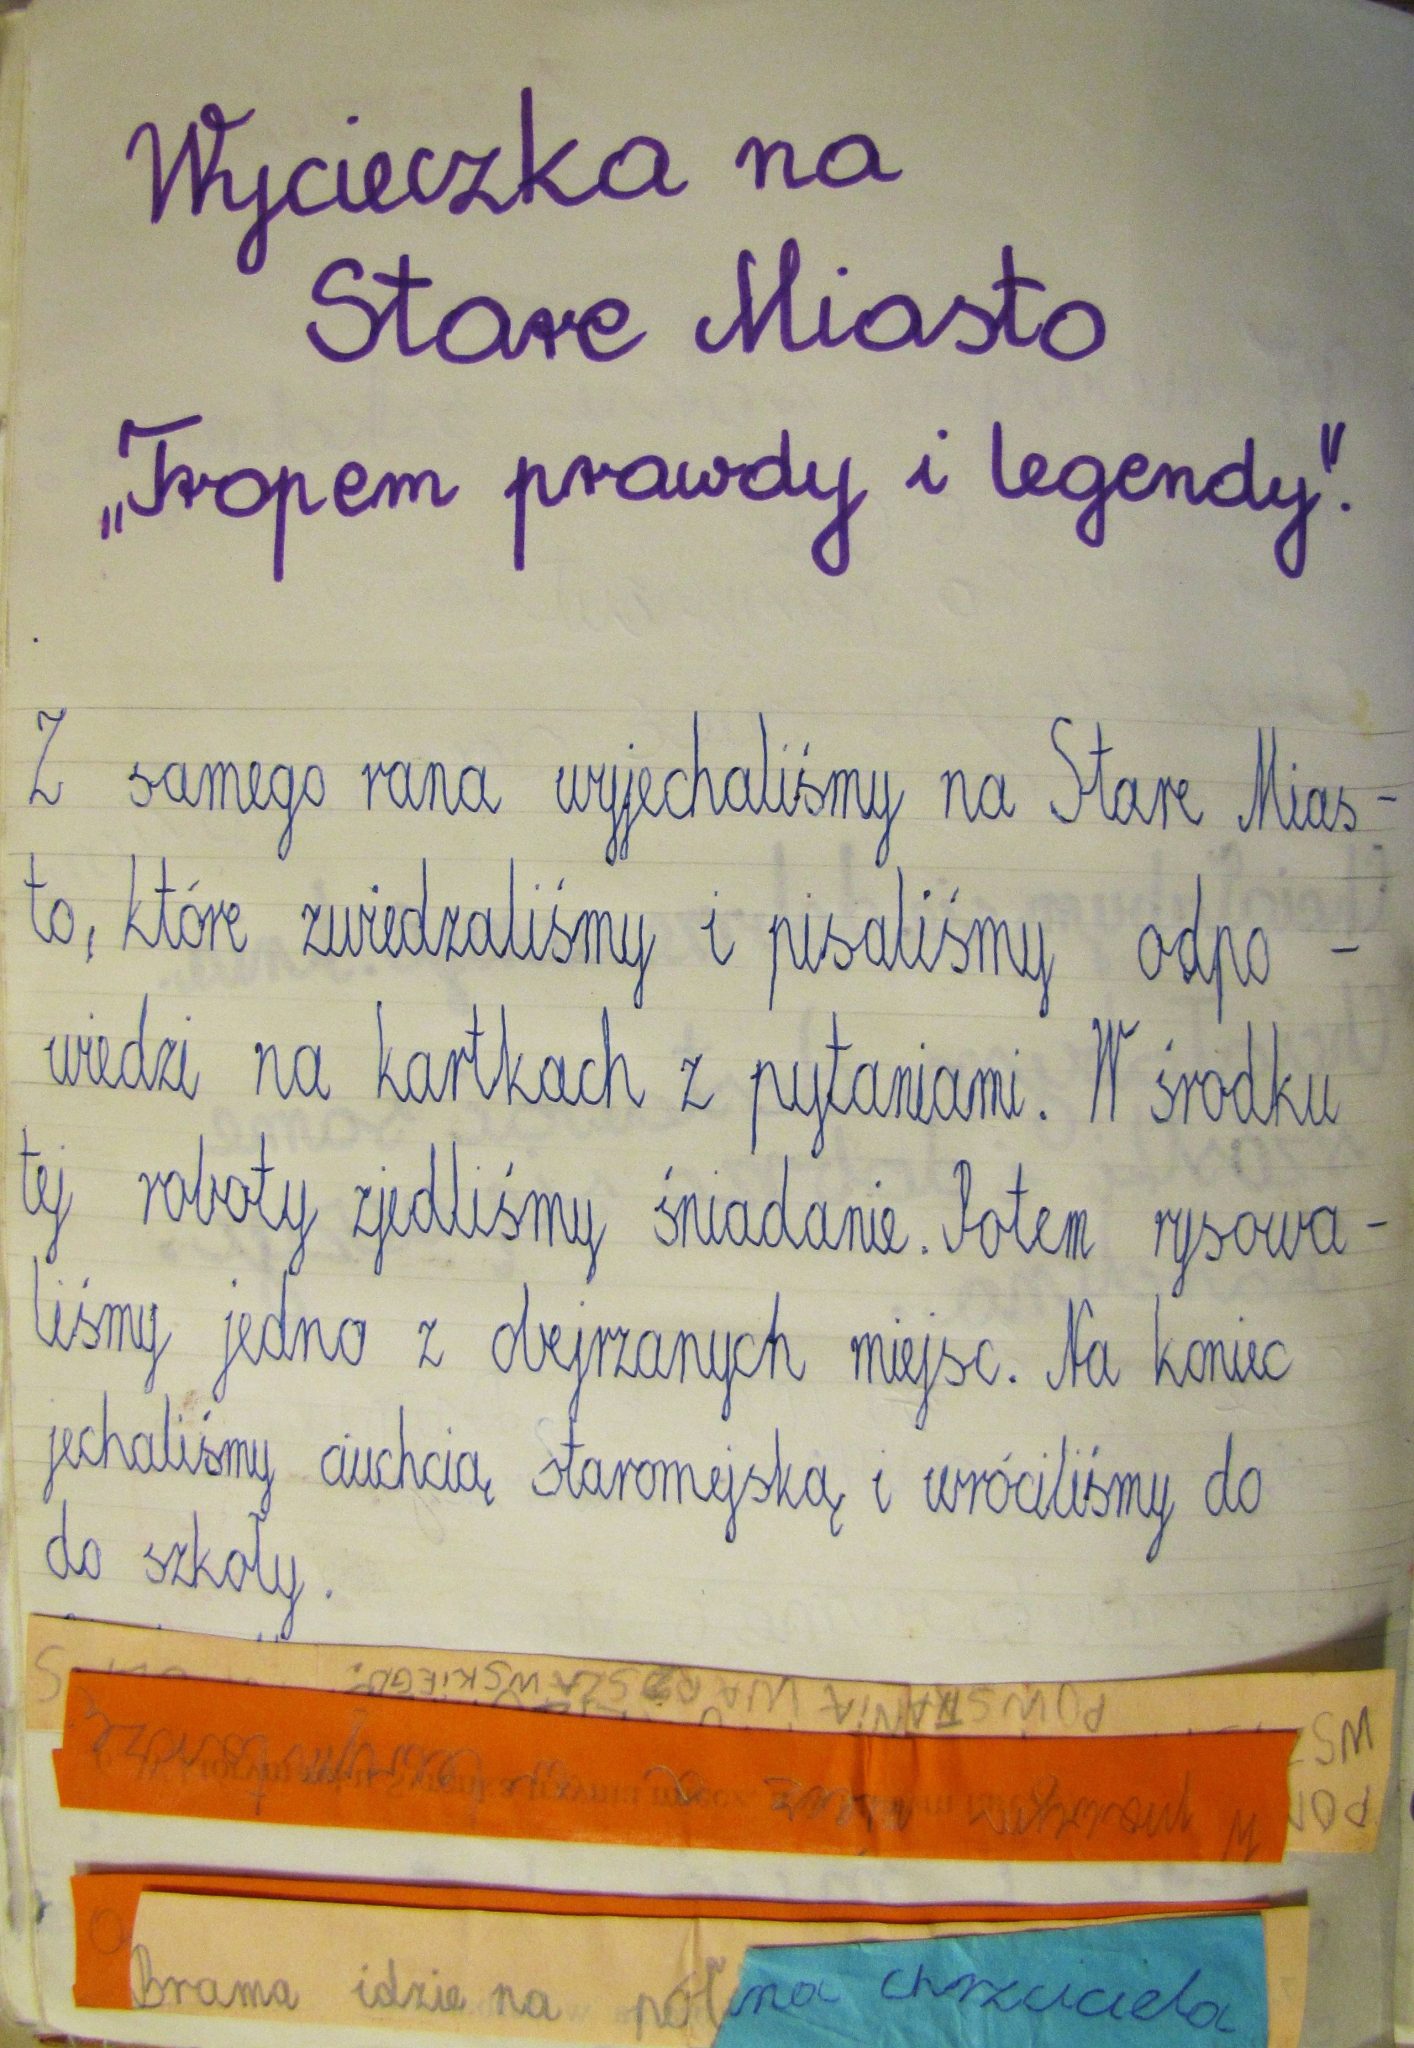 Wycieczka na
Stare Miasto
„Tropem prawdy i legendy".
Z samego rana wyjechaliśmy na Stare Mias-
to, które zwiedzaliśmy i pisaliśmy odpo-
wiedzi na kartkach z pytaniami. W środku
tej roboty zjedliśmy śniadanie. Potem rysowa-
liśmy jedno z obejrzanych miejsc. Na koniec
jechaliśmy ciuchcią staromejską i wróciliśmy do
do szkoły.
POWSTANIA WARSZAWSKIEGO?
Brama idzie na
na chrzciciela